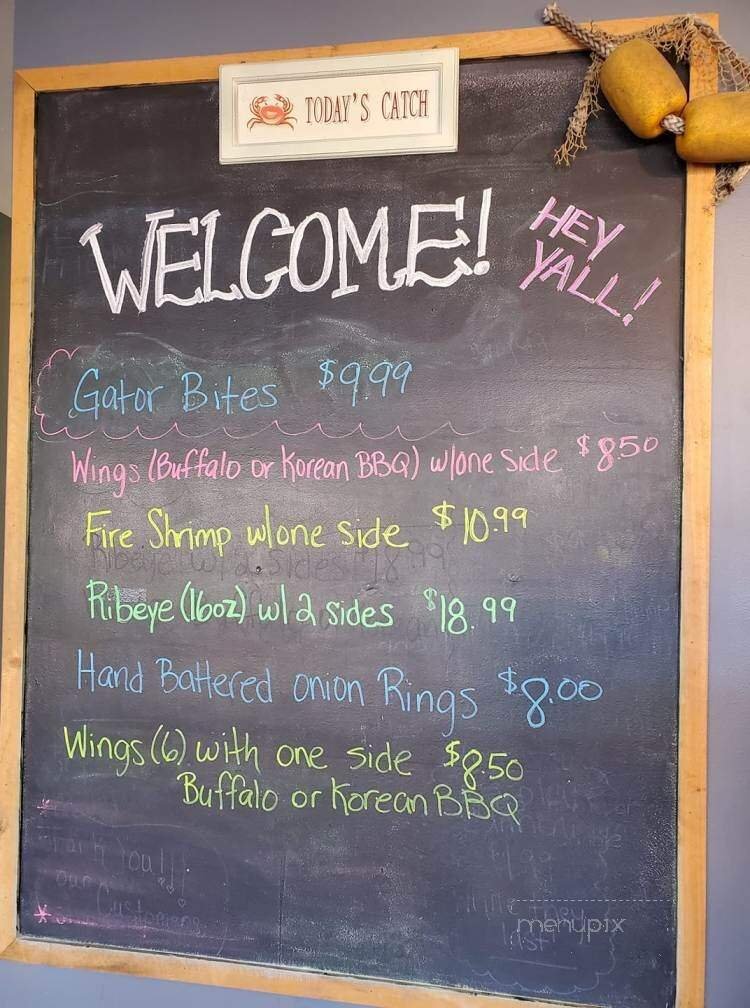 TODAY'S CATCH
WELCOME!
HEY
YALL!
Gator Bites $9.99
Wings (Buffalo or Korean BBQ) w/one side $8.50
Fire Shrimp w/one side $10.99
Ribeye w/ 2 sides 18.99
Ribeye (16oz) w/ 2 sides $18.99
Hand Battered onion Rings $8.00
Wings (6) with one side $8.50
Buffalo or Korean BBQ
Thank You!!!
our
Customers
menupix